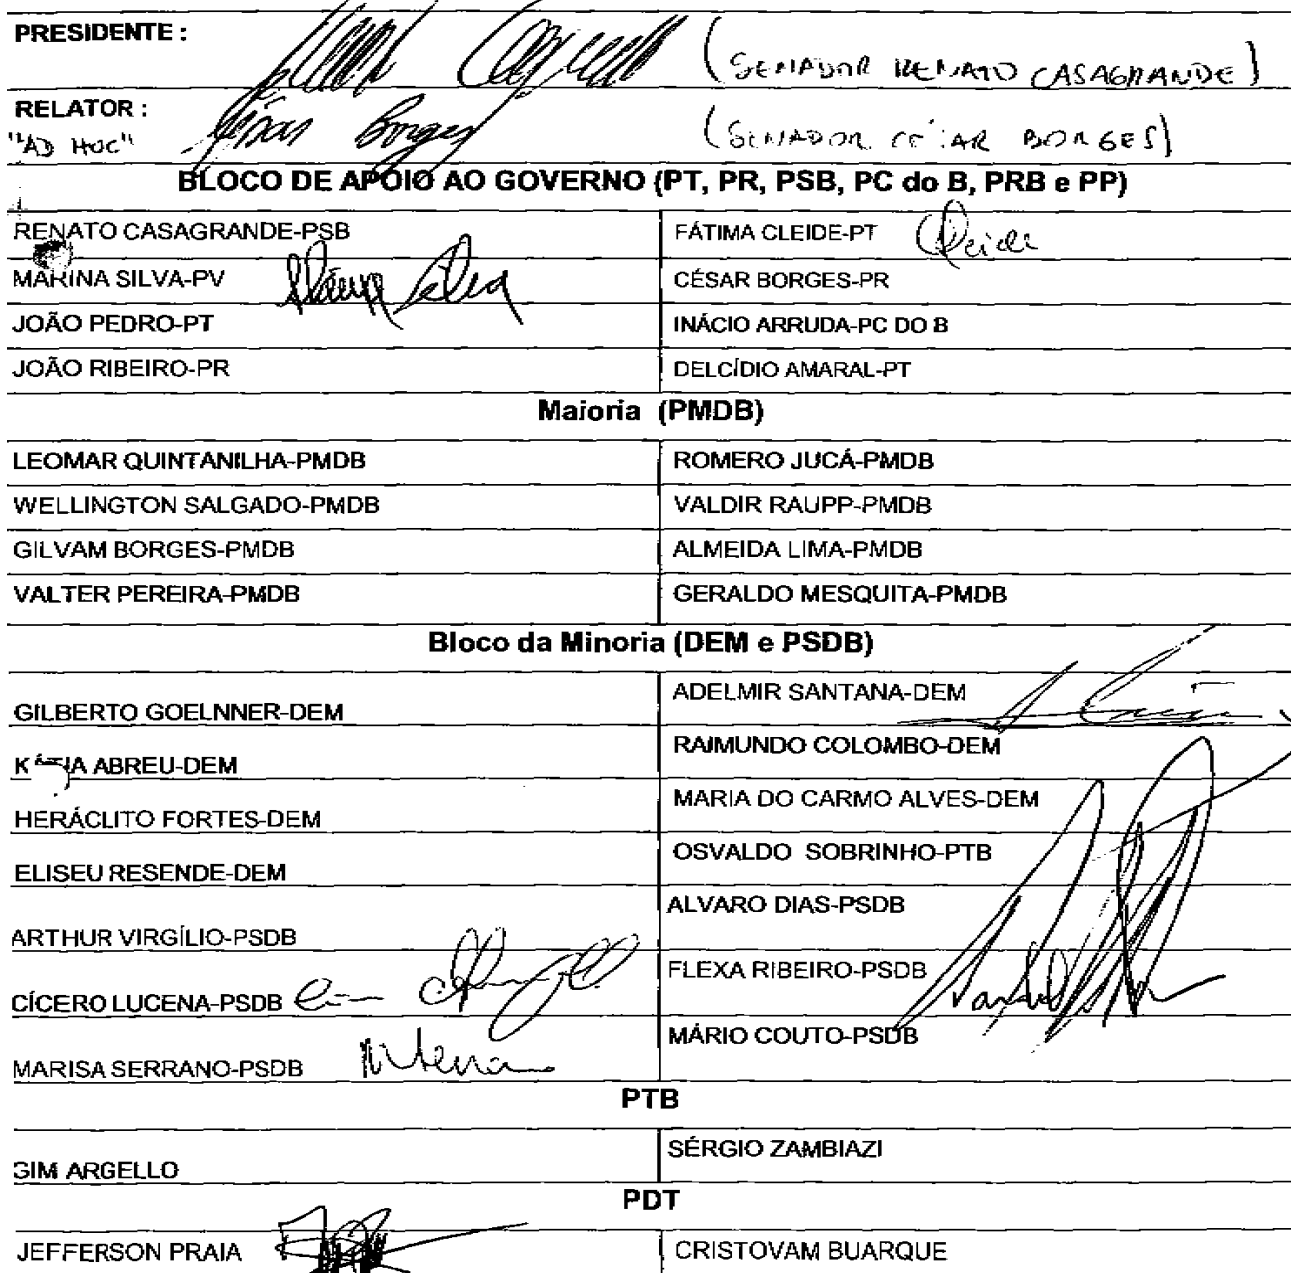 PRESIDENTE :
(SENADOR RENATO CASAGRANDE)
RELATOR :
"AD HOC"
César Borges
(SENADOR CÉSAR BORGES)
BLOCO DE APOIO AO GOVERNO (PT, PR, PSB, PC do B, PRB e PP)
RENATO CASAGRANDE-PSB
FÁTIMA CLEIDE-PT
Cleide
MARINA SILVA-PV
Marina Silva
CÉSAR BORGES-PR
JOÃO PEDRO-PT
INÁCIO ARRUDA-PC DO B
JOÃO RIBEIRO-PR
DELCÍDIO AMARAL-PT
Maioria (PMDB)
LEOMAR QUINTANILHA-PMDB
ROMERO JUCÁ-PMDB
WELLINGTON SALGADO-PMDB
VALDIR RAUPP-PMDB
GILVAM BORGES-PMDB
ALMEIDA LIMA-PMDB
VALTER PEREIRA-PMDB
GERALDO MESQUITA-PMDB
Bloco da Minoria (DEM e PSDB)
GILBERTO GOELNNER-DEM
ADELMIR SANTANA-DEM
KÁTIA ABREU-DEM
RAIMUNDO COLOMBO-DEM
HERÁCLITO FORTES-DEM
MARIA DO CARMO ALVES-DEM
ELISEU RESENDE-DEM
OSVALDO SOBRINHO-PTB
ARTHUR VIRGÍLIO-PSDB
ALVARO DIAS-PSDB
CÍCERO LUCENA-PSDB
FLEXA RIBEIRO-PSDB
MARISA SERRANO-PSDB
MÁRIO COUTO-PSDB
PTB
GIM ARGELLO
SÉRGIO ZAMBIAZI
PDT
JEFFERSON PRAIA
CRISTOVAM BUARQUE